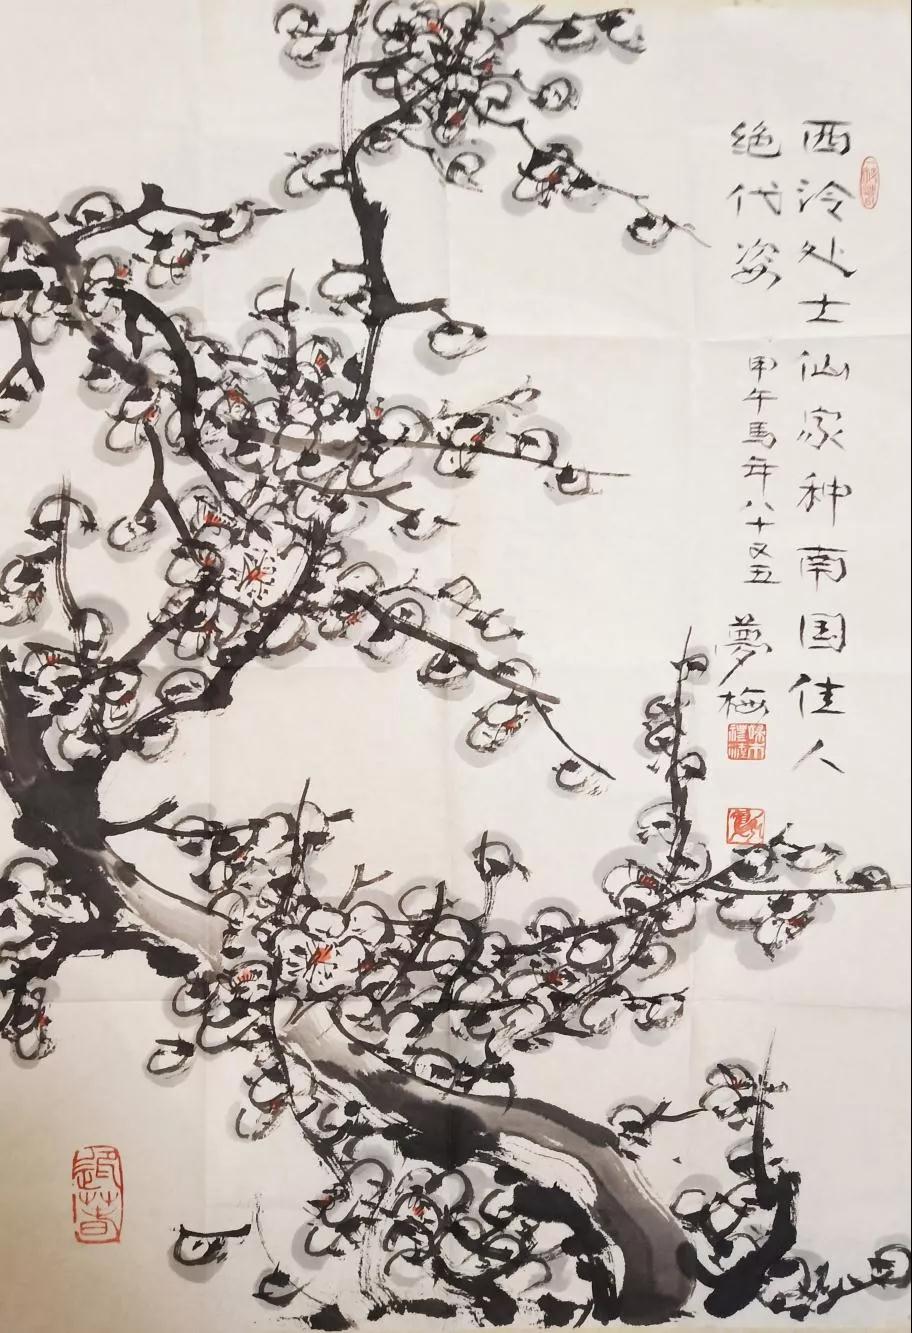 西泠处士仙家种南国佳人
绝代姿
甲午馬年八十又五
夢梅